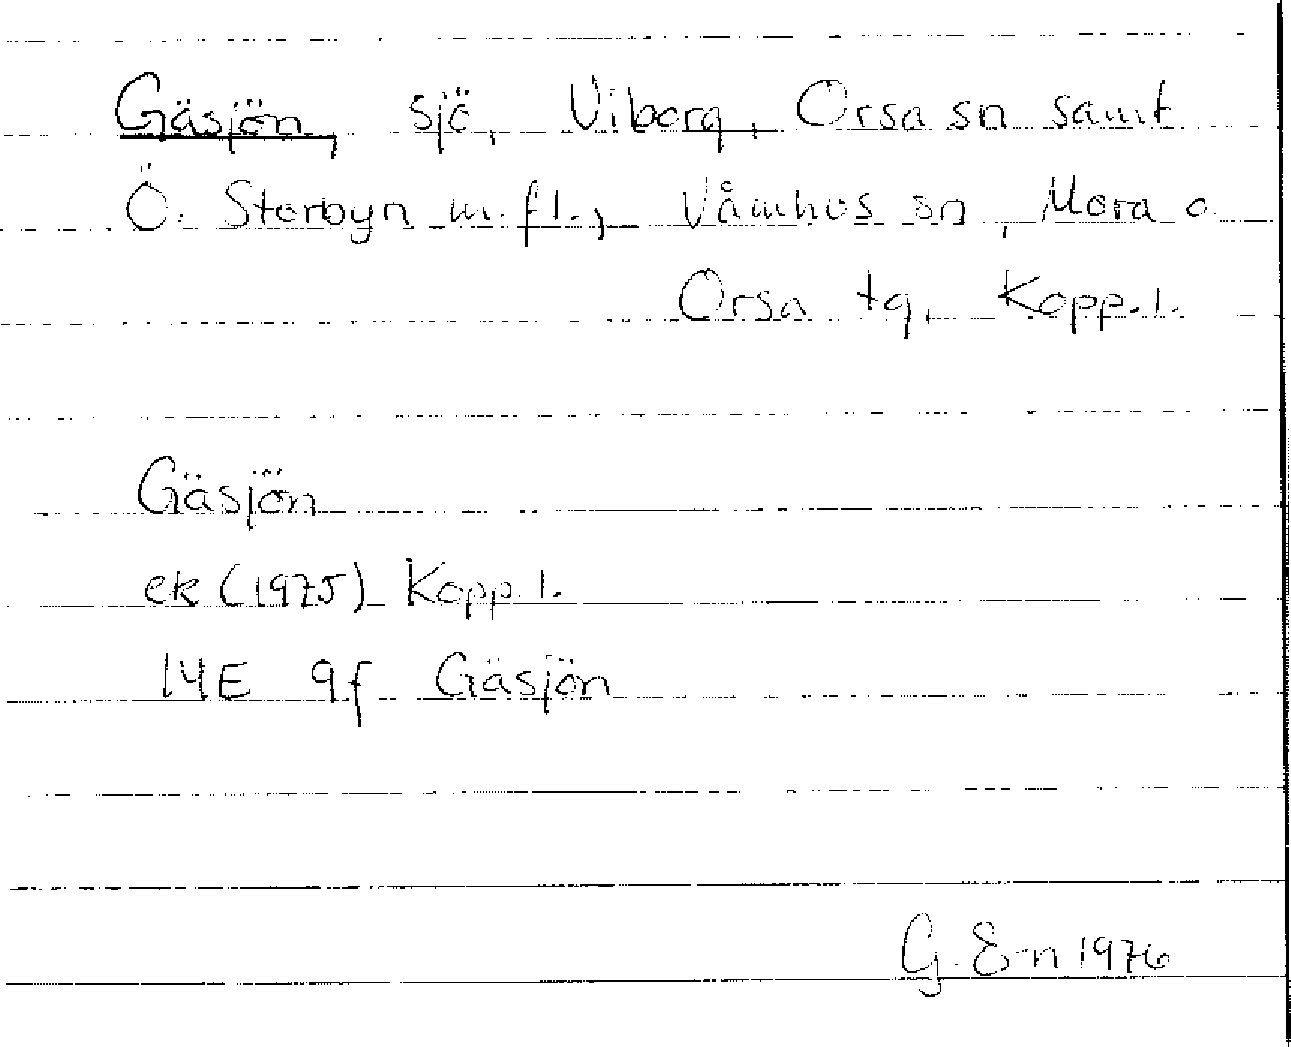 Gäsjön, sjö, Viborg, Orsa sn samt
Ö. Storbyn m.fl., Våmhus sn, Mora o.
Orsa tg, Kopp.l.
Gäsjön
ek (1975) Kopp.l.
14E 9f Gäsjön
G. E-n 1976